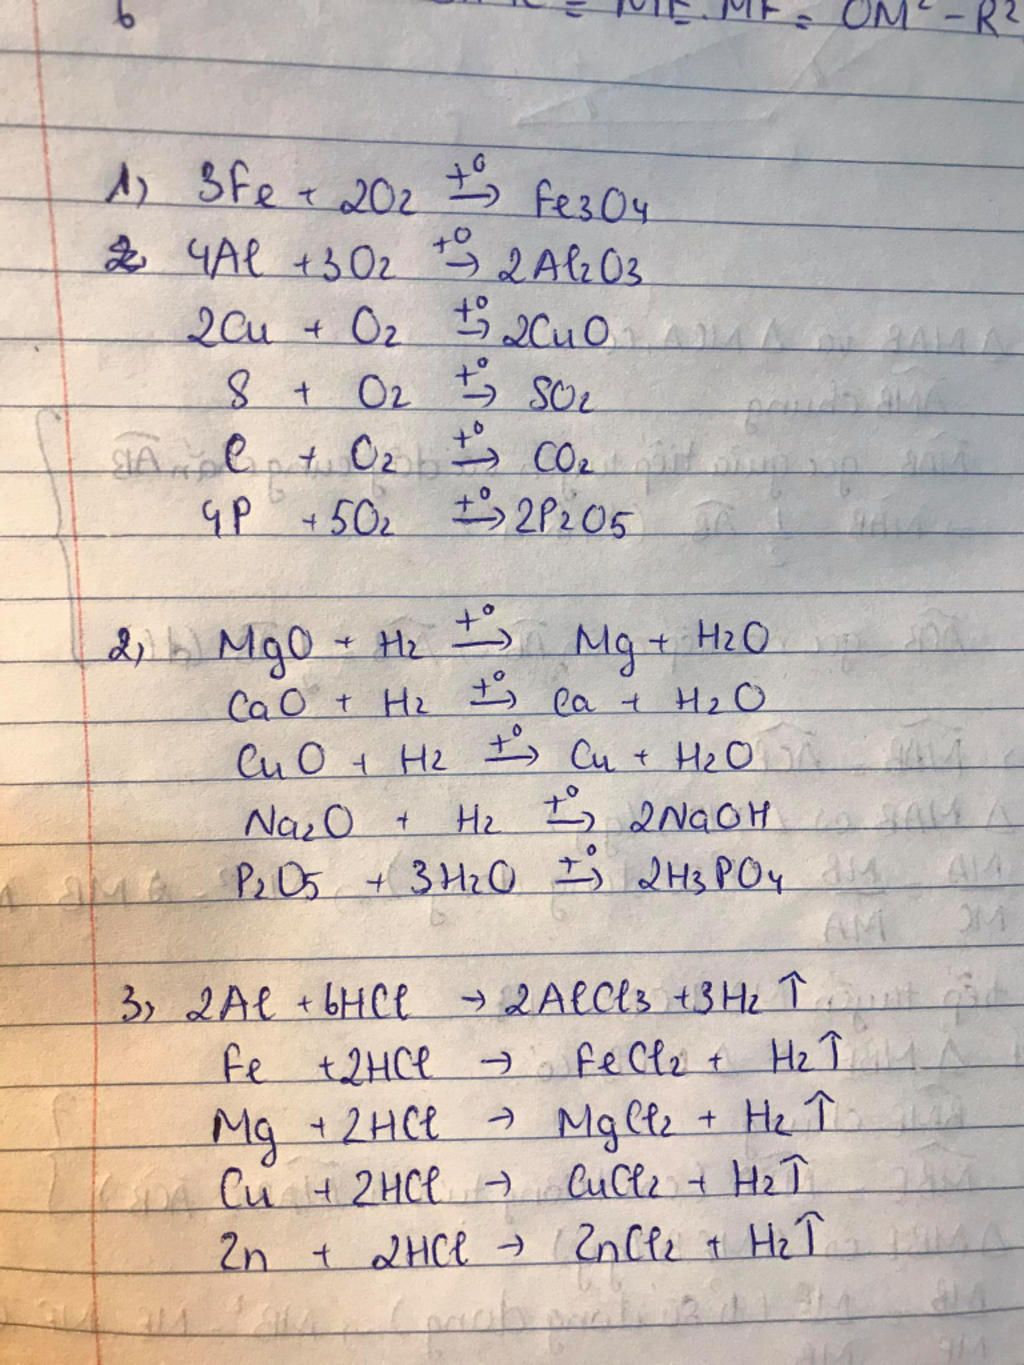 6 = ME.MF = OM² - R²
1) 3Fe + 2O2 t°→ Fe3O4
4Al + 3O2 t°→ 2Al2O3
2Cu + O2 t°→ 2CuO
S + O2 t°→ SO2
C + O2 t°→ CO2
4P + 5O2 t°→ 2P2O5
2) MgO + H2 t°→ Mg + H2O
CaO + H2 t°→ Ca + H2O
CuO + H2 t°→ Cu + H2O
Na2O + H2 t°→ 2NaOH
P2O5 + 3H2O t°→ 2H3PO4
3) 2Al + 6HCl → 2AlCl3 + 3H2↑
Fe + 2HCl → FeCl2 + H2↑
Mg + 2HCl → MgCl2 + H2↑
Cu + 2HCl → CuCl2 + H2↑
Zn + 2HCl → ZnCl2 + H2↑